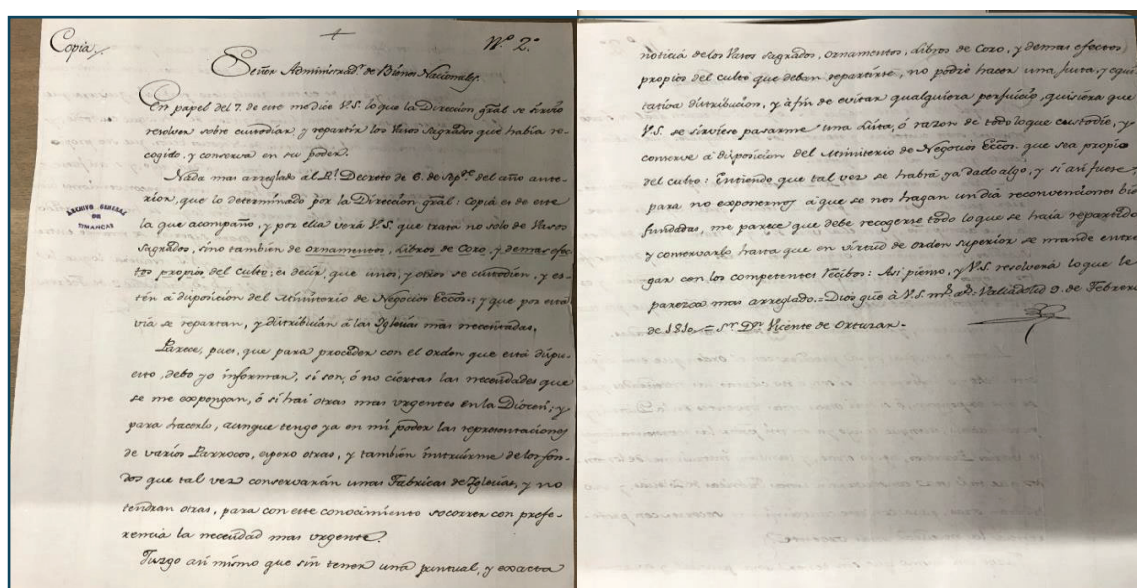 Copia
Nº 2º
Señor Administradr. de Bienes Nacionales.
En papel del 7. de este me dice V.S. lo que la Direccion gral se sirvió
resolver sobre custodiar, y repartir los Vasos Sagrados que había re-
cogido, y conserva en su poder.
Nada mas arreglado al Rl. Decreto de 6. de Spe. del año ante-
rior, que lo determinado por la Direccion gral: Copia es de este
la que acompaño, y por ella verá V.S. que trata no solo de Vasos
Sagrados, sino tambien de ornamentos, Libros de Coro, y demas efec-
tos propios del culto; es decir, que unos, y otros se custodien, y es-
tén a disposicion del Ministerio de Negocios Eccos.; y que por esta
vía se repartan, y distribuián a las Iglesias mas necesitadas.
Parece, pues, que para proceder con el orden que está dispu-
esto, debo yo informar, si son, ó no ciertas las necesidades que
se me expongan, ó si hai otras mas urgentes en la Diocesi; y
para hacerlo, aunque tengo ya en mi poder las representaciones
de varios Parrocos, espero otras, y tambien instruirme de los fon-
dos que tal vez conservarán unas Fabricas de Iglesias, y no
tendran otras, para con este conocimiento socorrer con prefe-
rencia la necesidad mas urgente.
Juzgo asi mismo que sin tener una puntual, y exacta
ARCHIVO GENERAL
DE
SIMANCAS
noticia de los Vasos Sagrados, ornamentos, Libros de Coro, y demas efectos
propios del culto que deban repartirse, no podré hacer una justa, y equi-
tativa distribucion, y à fin de evitar qualquiera perjuicio, quisiera que
V.S. se sirviese pasarme una lista, ó razon de todo lo que custodie, y
conserve a disposicion del Ministerio de Negocios Eccos. que sea propio
del culto: Entiendo que tal vez se habrá ya dado algo, y si asi fuese,
para no exponernos à que se nos hagan un dia reconvenciones bien
fundadas, me parece que debe recogerse todo lo que se haia repartido,
y conservarlo hasta que en virtud de orden superior se mande entre-
gar con los competentes recibos: Asi pienso, y V.S. resolverá lo que le
parezca mas arreglado.=Dios gue à V.S. ms. as. Valladolid 9. de Febrero
de 1810.= Sr. Dn. Vicente de Orturar.